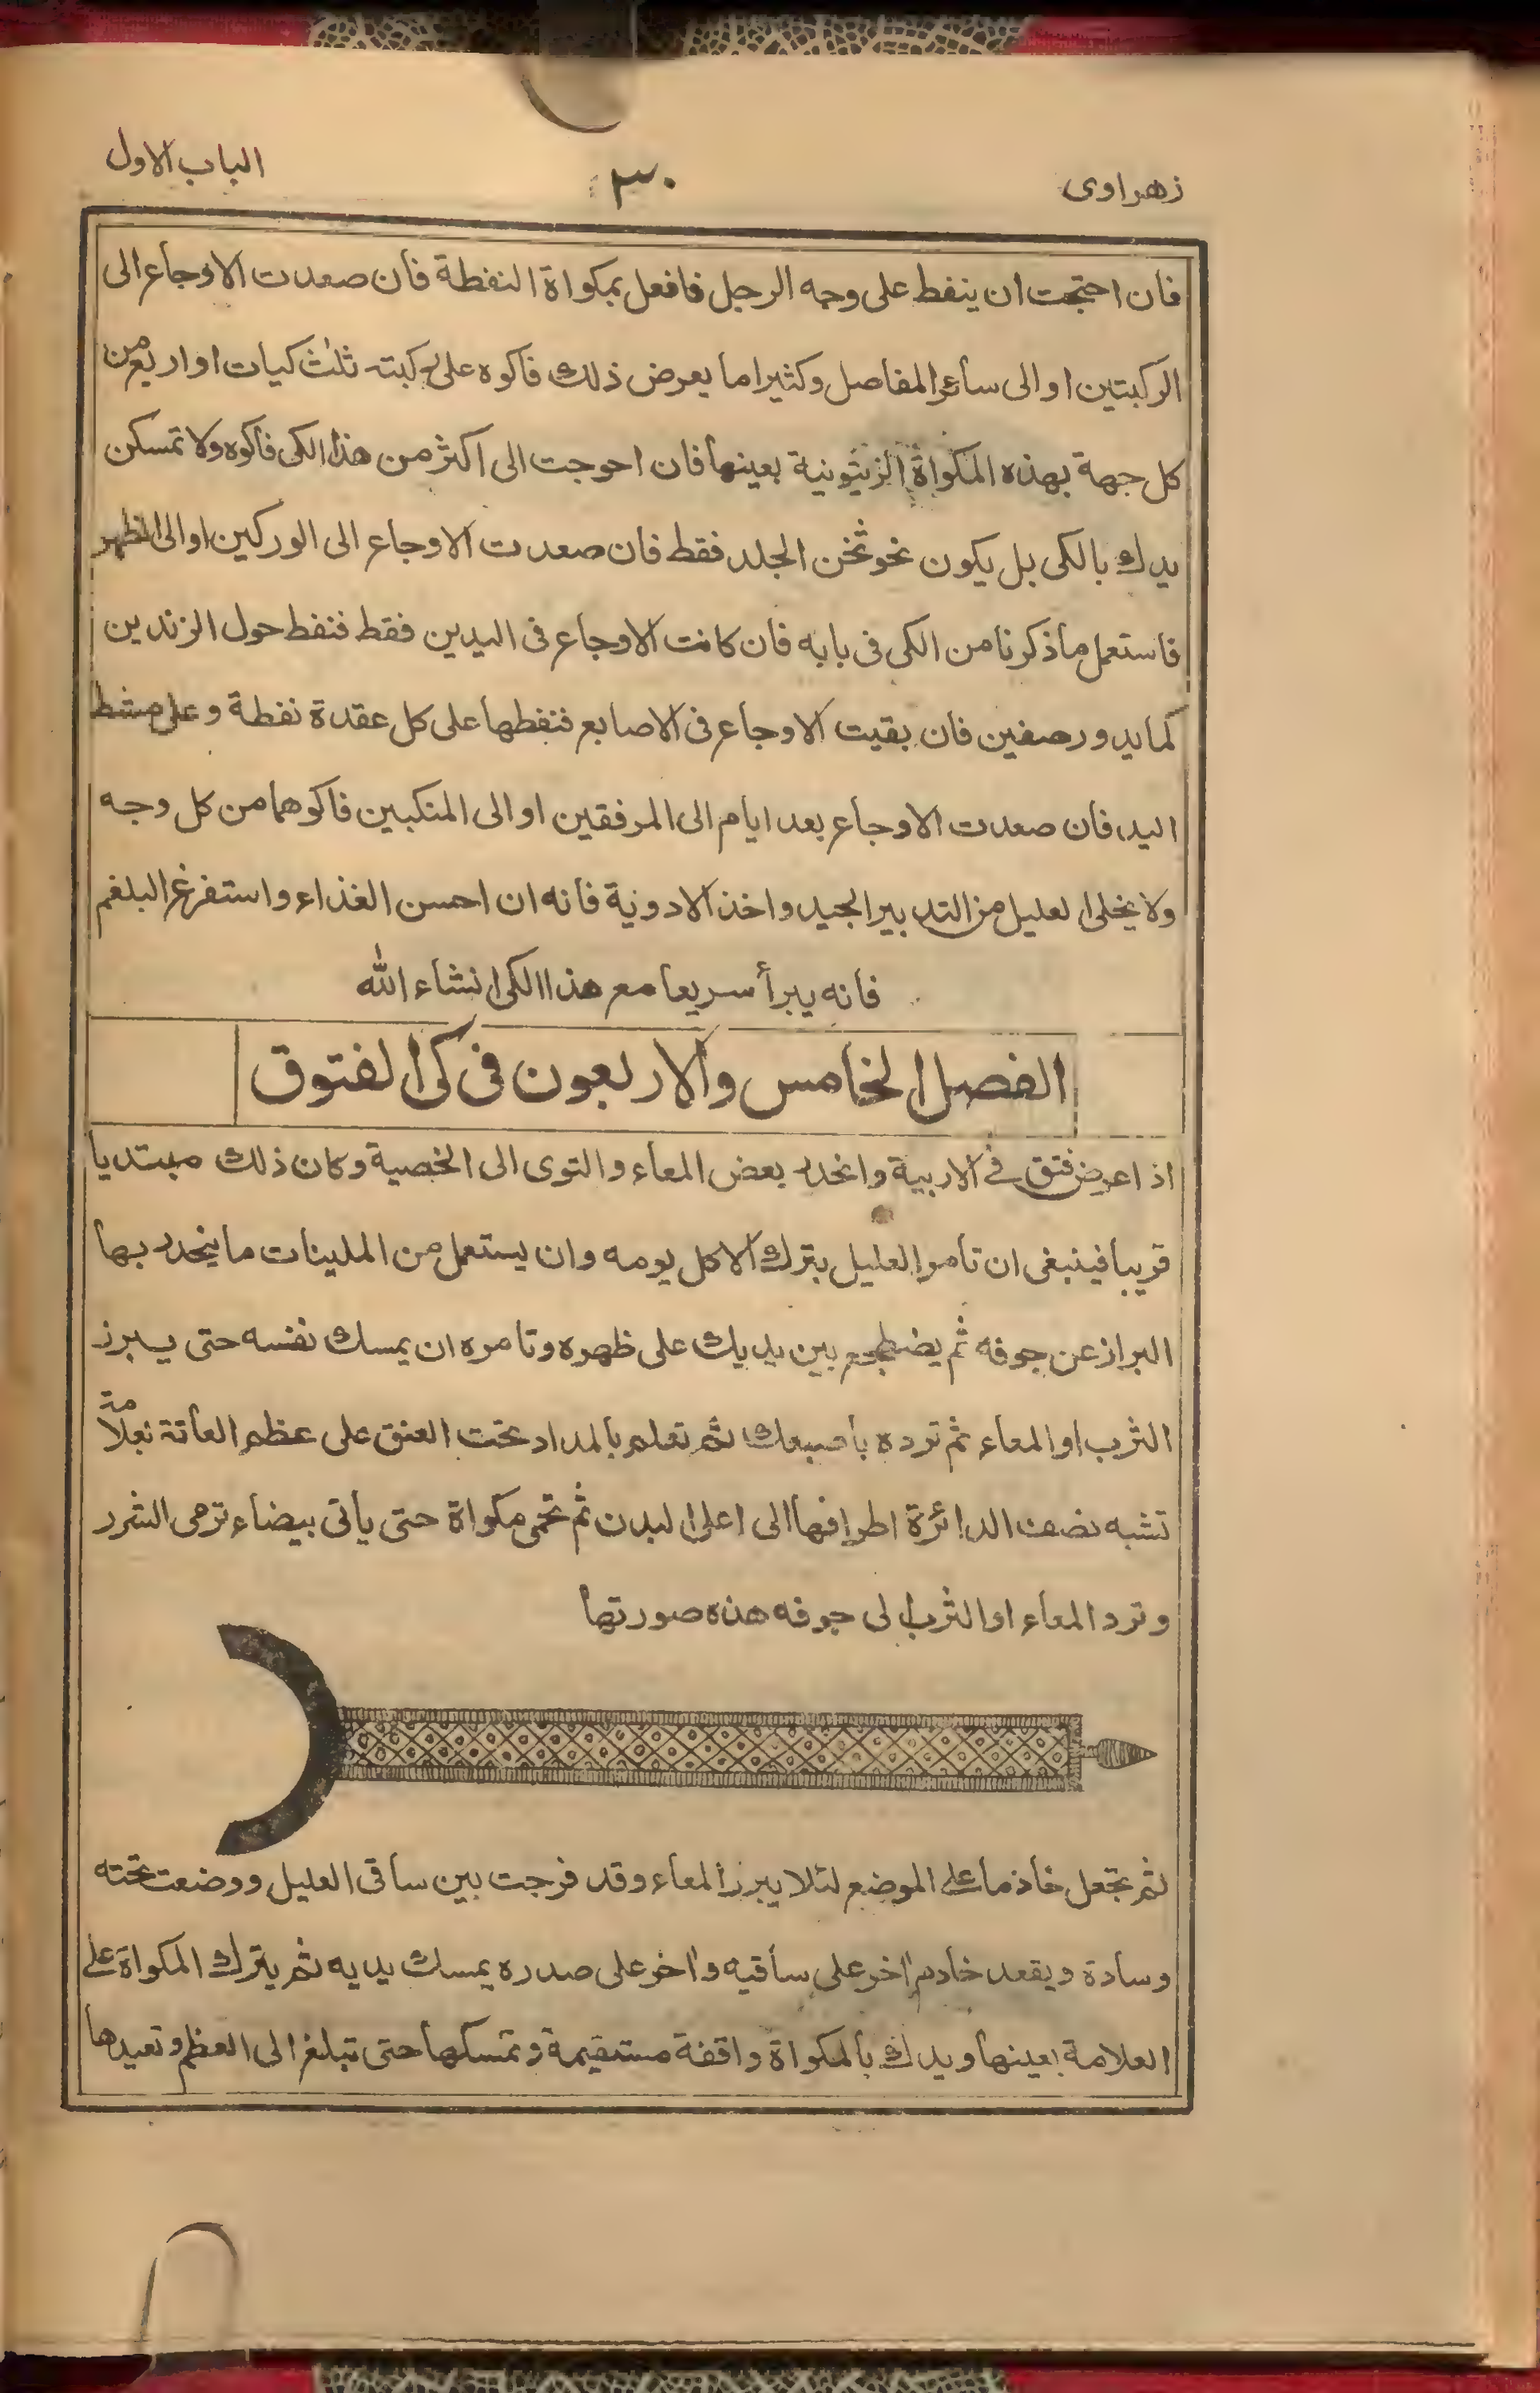 زهراوى
٣٠
الباب الاول
فان احتجت ان ينفط على وجه الرجل فافعل بمكواة النفطة فان صعدت الاوجاع الى
الركبتين او الى سائر المفاصل وكثيرا ما يعرض ذلك فاكوه على ركبته ثلث كيات او اربع من
كل جهة بهذه المكواة الزيتونية بعينها فان احوجت الى اكثر من هذا الكى فاكوه ولا تمسكن
يدك بالكى بل يكون نحو ثخن الجلد فقط فان صعدت الاوجاع الى الوركين او الى الظهر
فاستعمل ما ذكرنا من الكى فى بابه فان كانت الاوجاع فى اليدين فقط فنفط حول الزندين
كما يدور صفين فان بقيت الاوجاع فى الاصابع فنفطها على كل عقدة نفطة وعلى مشط
اليد، فان صعدت الاوجاع بعد ايام الى المرفقين او الى المنكبين فاكوهما من كل وجه
ولا يخلى العليل من التدبير الجيد واخذ الادوية فانه ان احسن الغذاء واستفرغ البلغم
فانه يبرأ سريعا مع هذا الكى انشاء الله
الفصل الخامس والاربعون فى كى الفتوق
اذا عرض فتق فى الاربية وانحدر بعض المعاء والتوى الى الخصية وكان ذلك مبتديا
قريبا فينبغى ان تأمر العليل بترك الاكل يومه وان يستعمل من الملينات ما ينحدر بها
البراز عن جوفه ثم يضطجع بين يديك على ظهره وتامره ان يمسك نفسه حتى يبرز
الثرب او المعاء ثم ترده بأصبعك ثم تعلم بالمداد تحت العنق على عظم العانة بعلامة
تشبه نصف الدائرة اطرافها الى اعلى البدن ثم تحمى مكواة حتى يأتى بيضاء ترمى الشرر
وترد المعاء او الثرب الى جوفه هذه صورتها
ثم تجعل خاذما على الموضع لئلا يبرز المعاء وقد فرجت بين ساقى العليل ووضعت تحته
وسادة ويقعد خادم اخر على ساقيه واخر على صدره يمسك يديه ثم يترك المكواة على
العلامة بعينها ويدك بالمكواة واقفة مستقيمة وتمسكها حتى تبلغ الى العظم وتعيدها